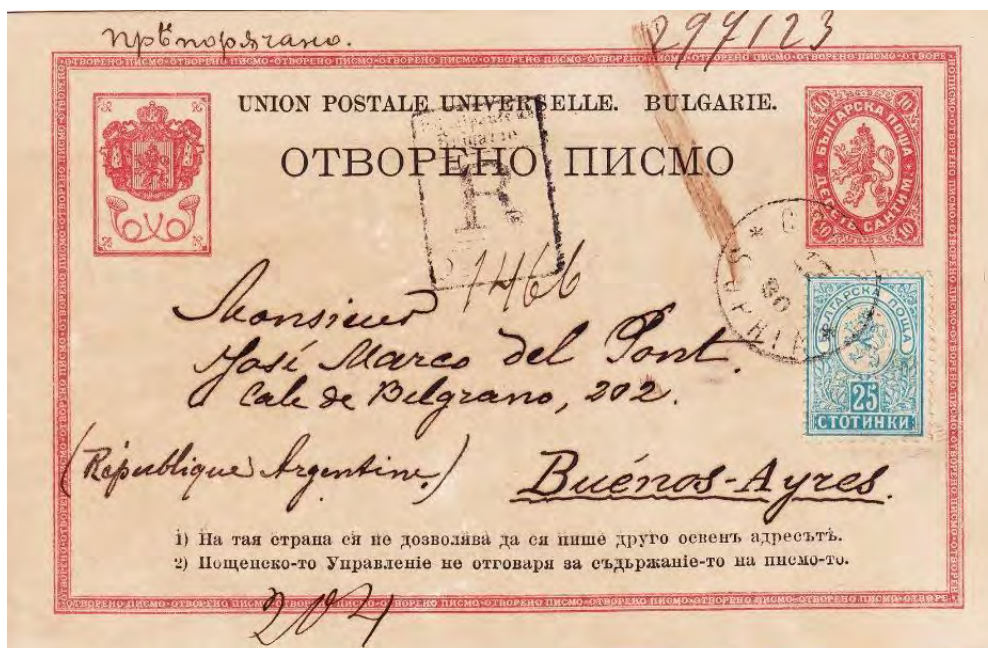 прѣпорѫчано.
297123
UNION POSTALE UNIVERSELLE. BULGARIE.
ОТВОРЕНО ПИСМО
10 10
БЪЛГАРСКА ПОЩА
ДЕСЕТЬ САНТИМ.
10 10
R
1466
Monsieur
José Marco del Pont.
Cale de Belgrano, 202.
БЪЛГАРСКА ПОЩА
25
СТОТИНКИ
(République Argentine.)
Buénos-Ayres.
1) На тая страна ся не дозволява да ся пише друго освенъ адресътъ.
2) Пощенско-то Управленіе не отговаря за съдържаніе-то на писмо-то.
204